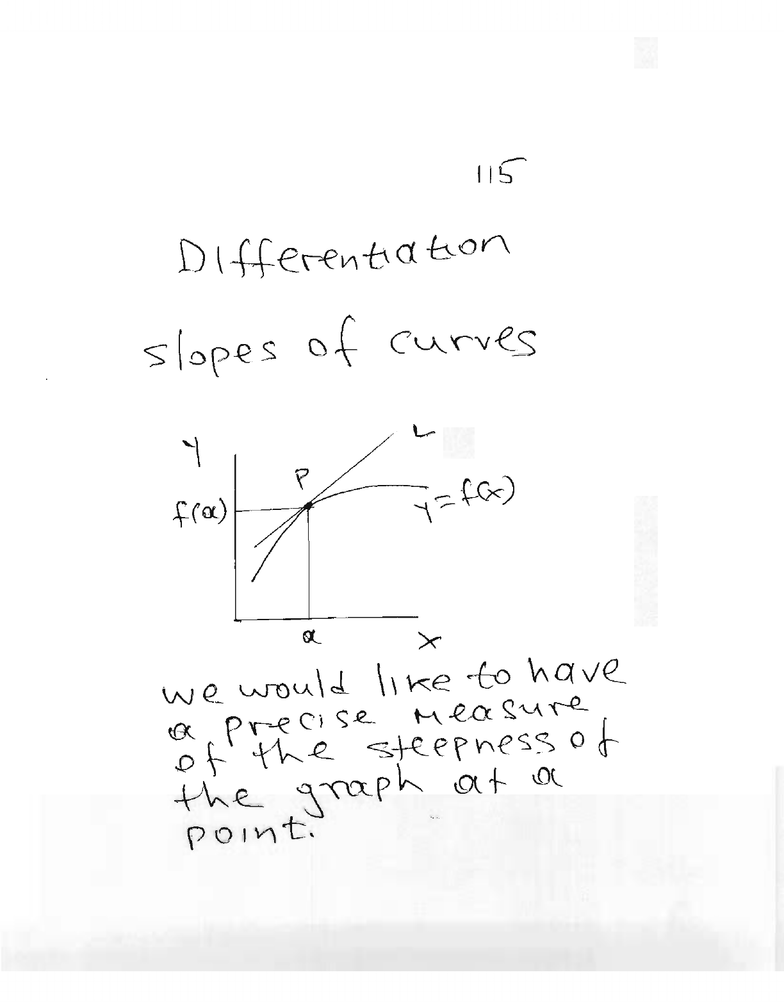 115
Differentiation
slopes of curves
Y
L
P
f(a)
Y=f(x)
a
X
we would like to have
a precise measure
of the steepness of
the graph at a
point.